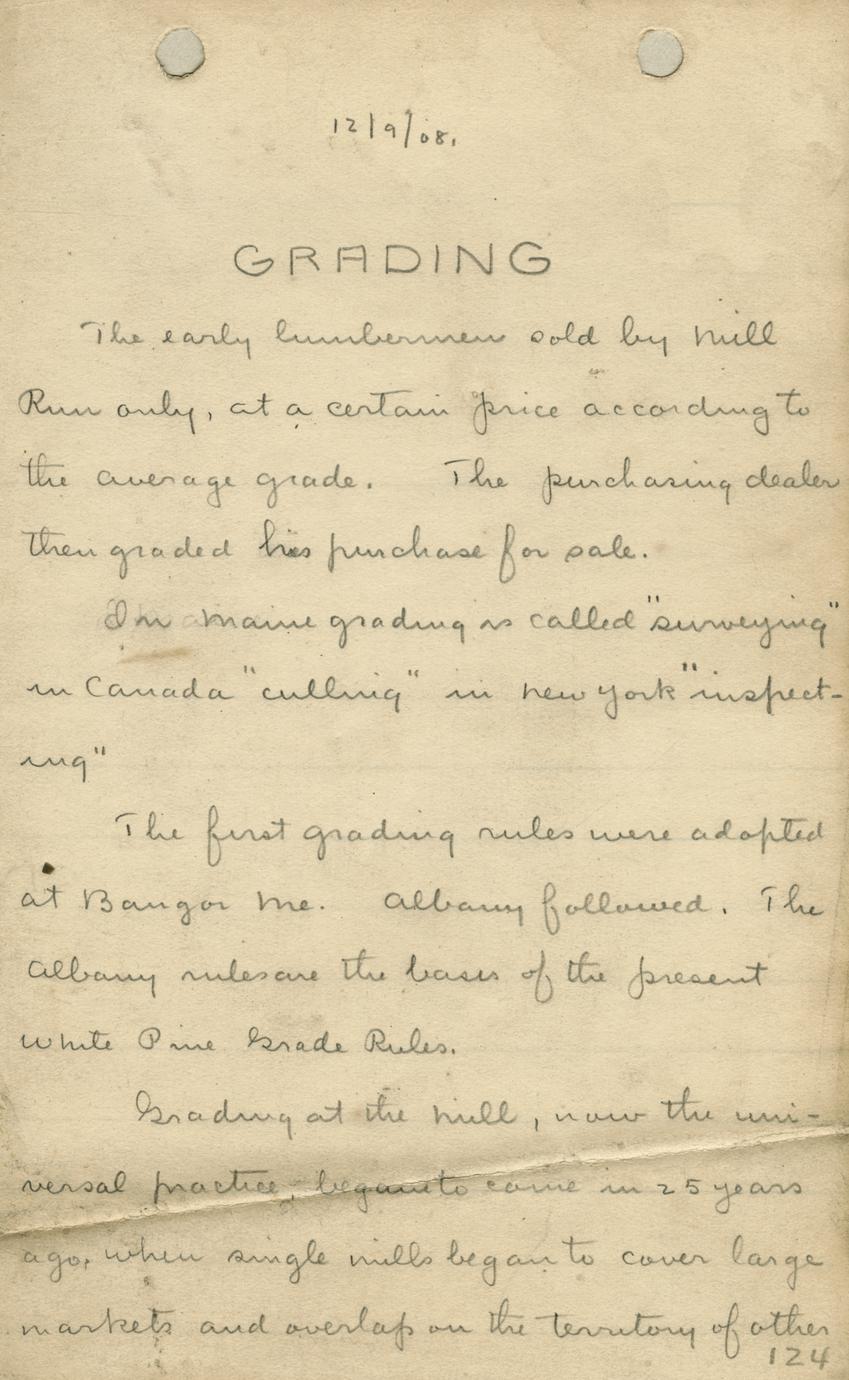 12/9/08.
GRADING
The early lumbermen sold by Mill
Run only, at a certain price according to
the average grade. The purchasing dealer
then graded his purchase for sale.
In Maine grading is called "surveying"
in Canada "culling" in New York "inspect-
ing"
The first grading rules were adopted
at Bangor Me. Albany followed. The
Albany rules are the basis of the present
White Pine Grade Rules.
Grading at the Mill, now the uni-
versal practice, began to come in 25 years
ago, when single mills began to cover large
markets and overlap on the territory of other
124